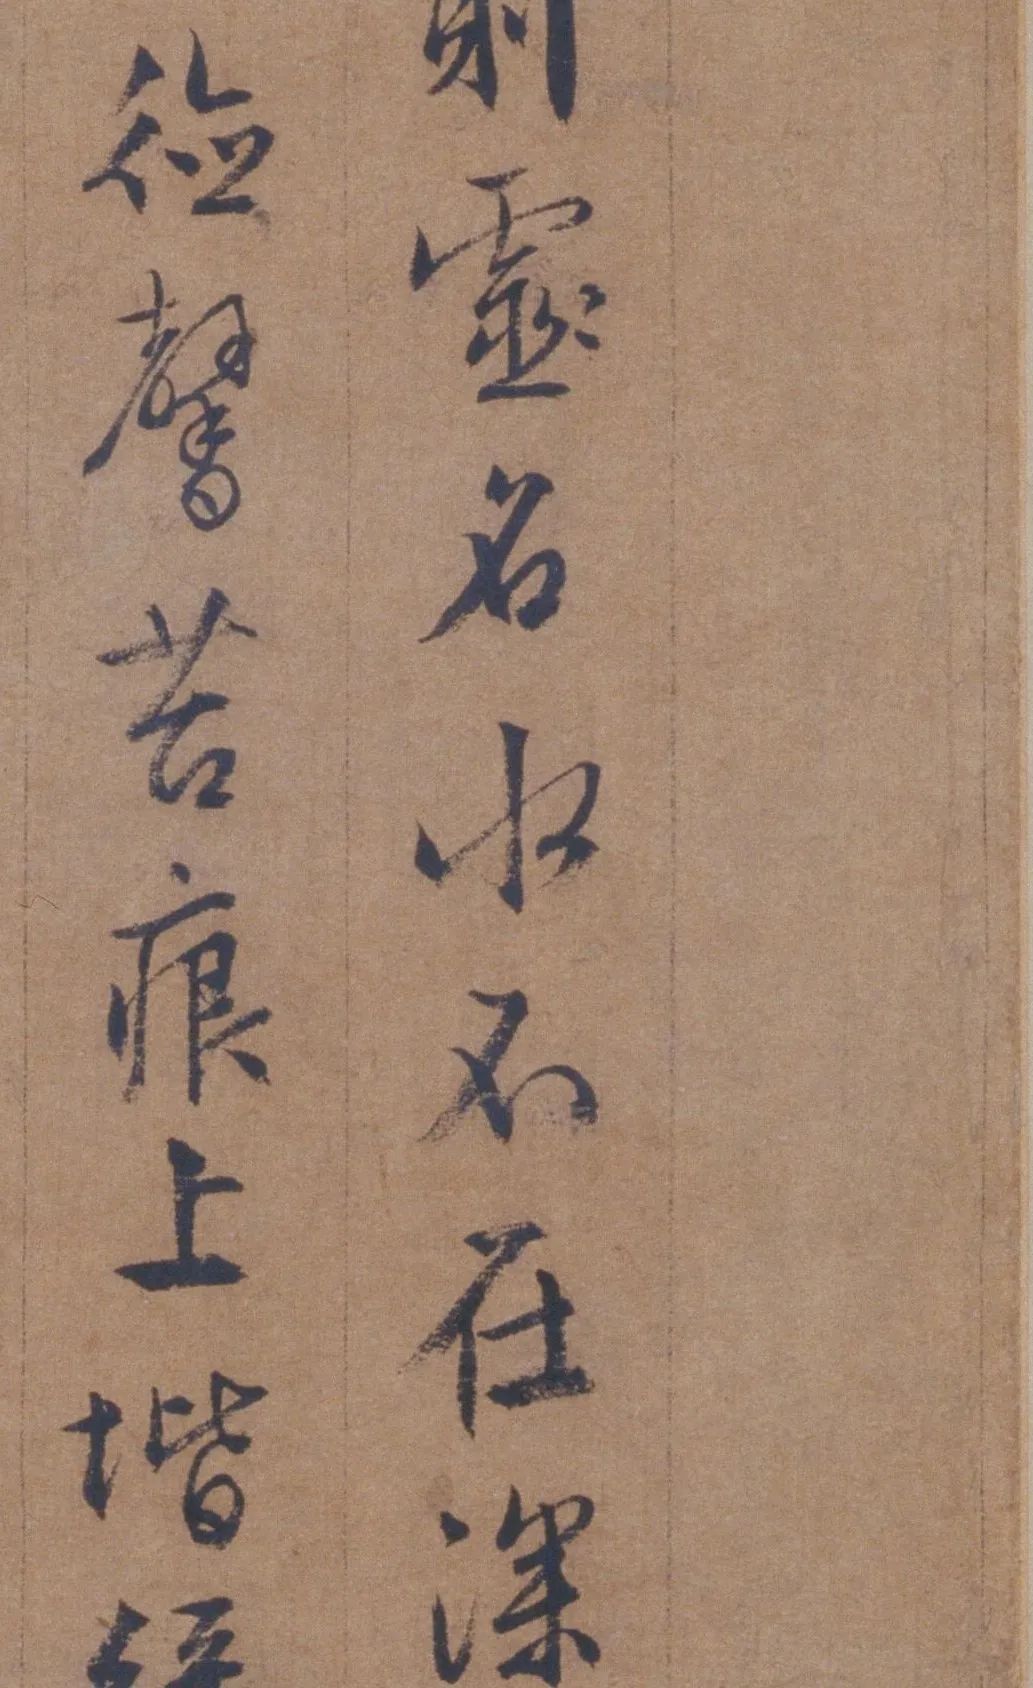 則靈名水不在深
德馨苔痕上堦